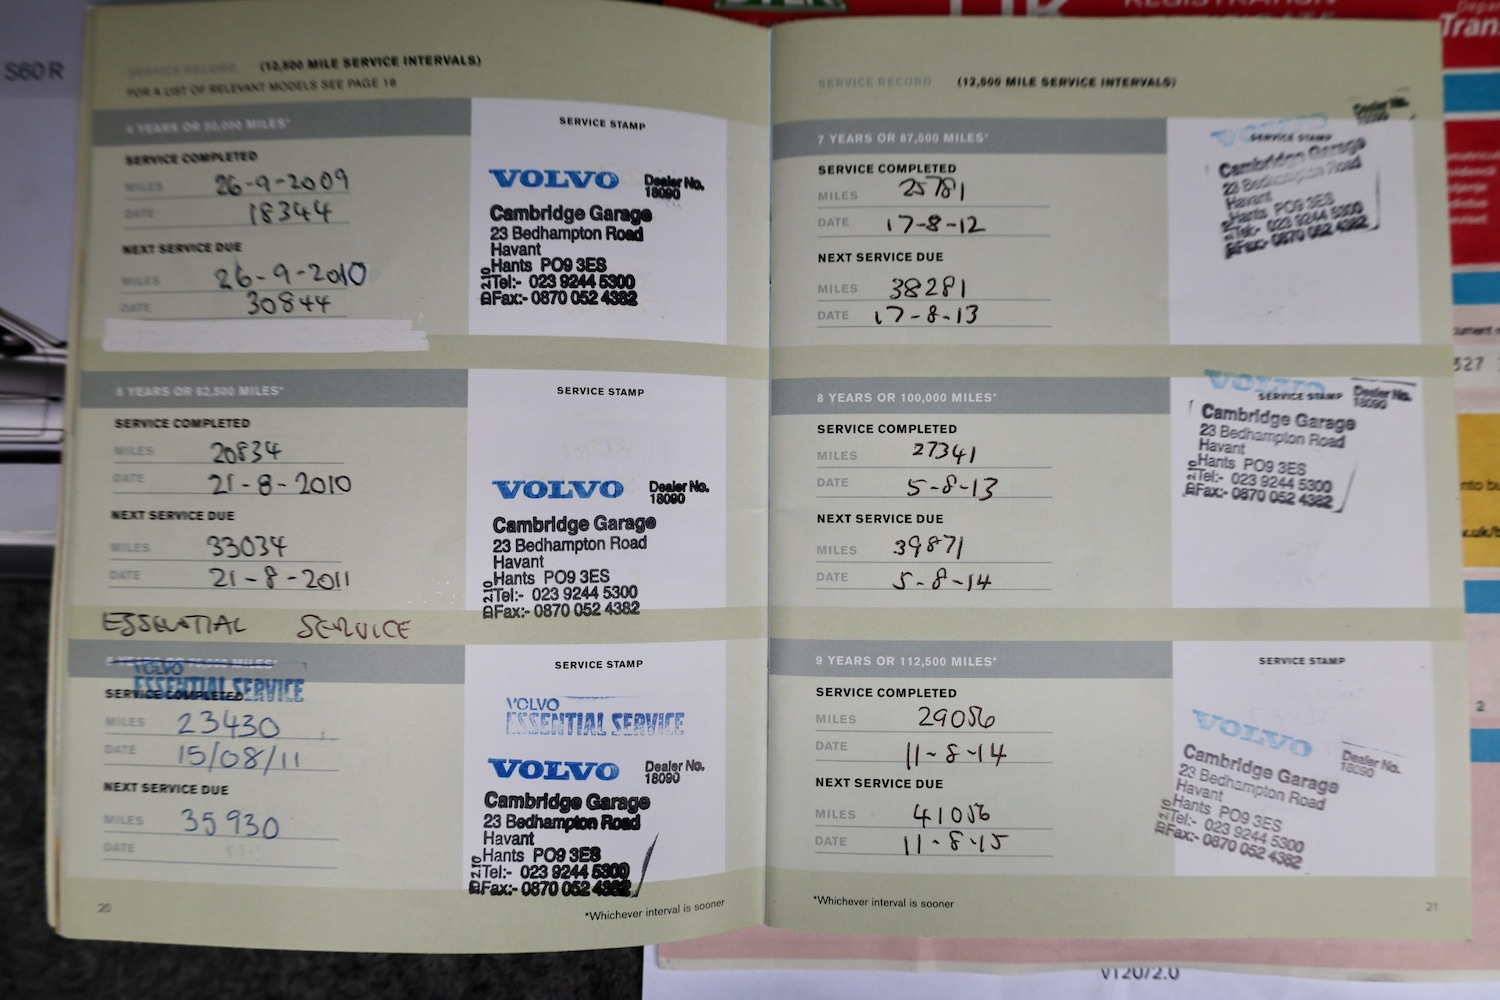 S60 R
SERVICE RECORD (12,500 MILE SERVICE INTERVALS)
FOR A LIST OF RELEVANT MODELS SEE PAGE 18
4 YEARS OR 50,000 MILES*
SERVICE COMPLETED
MILES 26-9-2009
DATE 18344
NEXT SERVICE DUE
MILES 26-9-2010
DATE 30844
SERVICE STAMP
VOLVO Dealer No.
18090
Cambridge Garage
23 Bedhampton Road
Havant
Hants PO9 3ES
Tel:- 023 9244 5300
Fax:- 0870 052 4382
D2.10
5 YEARS OR 62,500 MILES*
SERVICE COMPLETED
MILES 20834
DATE 21-8-2010
NEXT SERVICE DUE
MILES 33034
DATE 21-8-2011
ESSENTIAL SERVICE
SERVICE STAMP
VOLVO Dealer No.
18090
Cambridge Garage
23 Bedhampton Road
Havant
Hants PO9 3ES
Tel:- 023 9244 5300
Fax:- 0870 052 4382
D2.10
6 YEARS OR 75,000 MILES*
VOLVO
ESSENTIAL SERVICE
SERVICE COMPLETED
MILES 23430
DATE 15/08/11
NEXT SERVICE DUE
MILES 35930
DATE
SERVICE STAMP
VOLVO
ESSENTIAL SERVICE
VOLVO Dealer No.
18090
Cambridge Garage
23 Bedhampton Road
Havant
Hants PO9 3ES
Tel:- 023 9244 5300
Fax:- 0870 052 4382
D2.10
20
*Whichever interval is sooner
SERVICE RECORD (12,500 MILE SERVICE INTERVALS)
7 YEARS OR 87,500 MILES*
SERVICE COMPLETED
MILES 25781
DATE 17-8-12
NEXT SERVICE DUE
MILES 38281
DATE 17-8-13
SERVICE STAMP
VOLVO Dealer No.
18090
Cambridge Garage
23 Bedhampton Road
Havant
Hants PO9 3ES
Tel:- 023 9244 5300
Fax:- 0870 052 4382
8 YEARS OR 100,000 MILES*
SERVICE COMPLETED
MILES 27341
DATE 5-8-13
NEXT SERVICE DUE
MILES 39871
DATE 5-8-14
SERVICE STAMP
VOLVO Dealer No.
18090
Cambridge Garage
23 Bedhampton Road
Havant
Hants PO9 3ES
Tel:- 023 9244 5300
Fax:- 0870 052 4382
D2.10
9 YEARS OR 112,500 MILES*
SERVICE COMPLETED
MILES 29056
DATE 11-8-14
NEXT SERVICE DUE
MILES 41056
DATE 11-8-15
SERVICE STAMP
VOLVO Dealer No.
18090
Cambridge Garage
23 Bedhampton Road
Havant
Hants PO9 3ES
Tel:- 023 9244 5300
Fax:- 0870 052 4382
D2.10
*Whichever interval is sooner
21
REGISTRATION
327
2